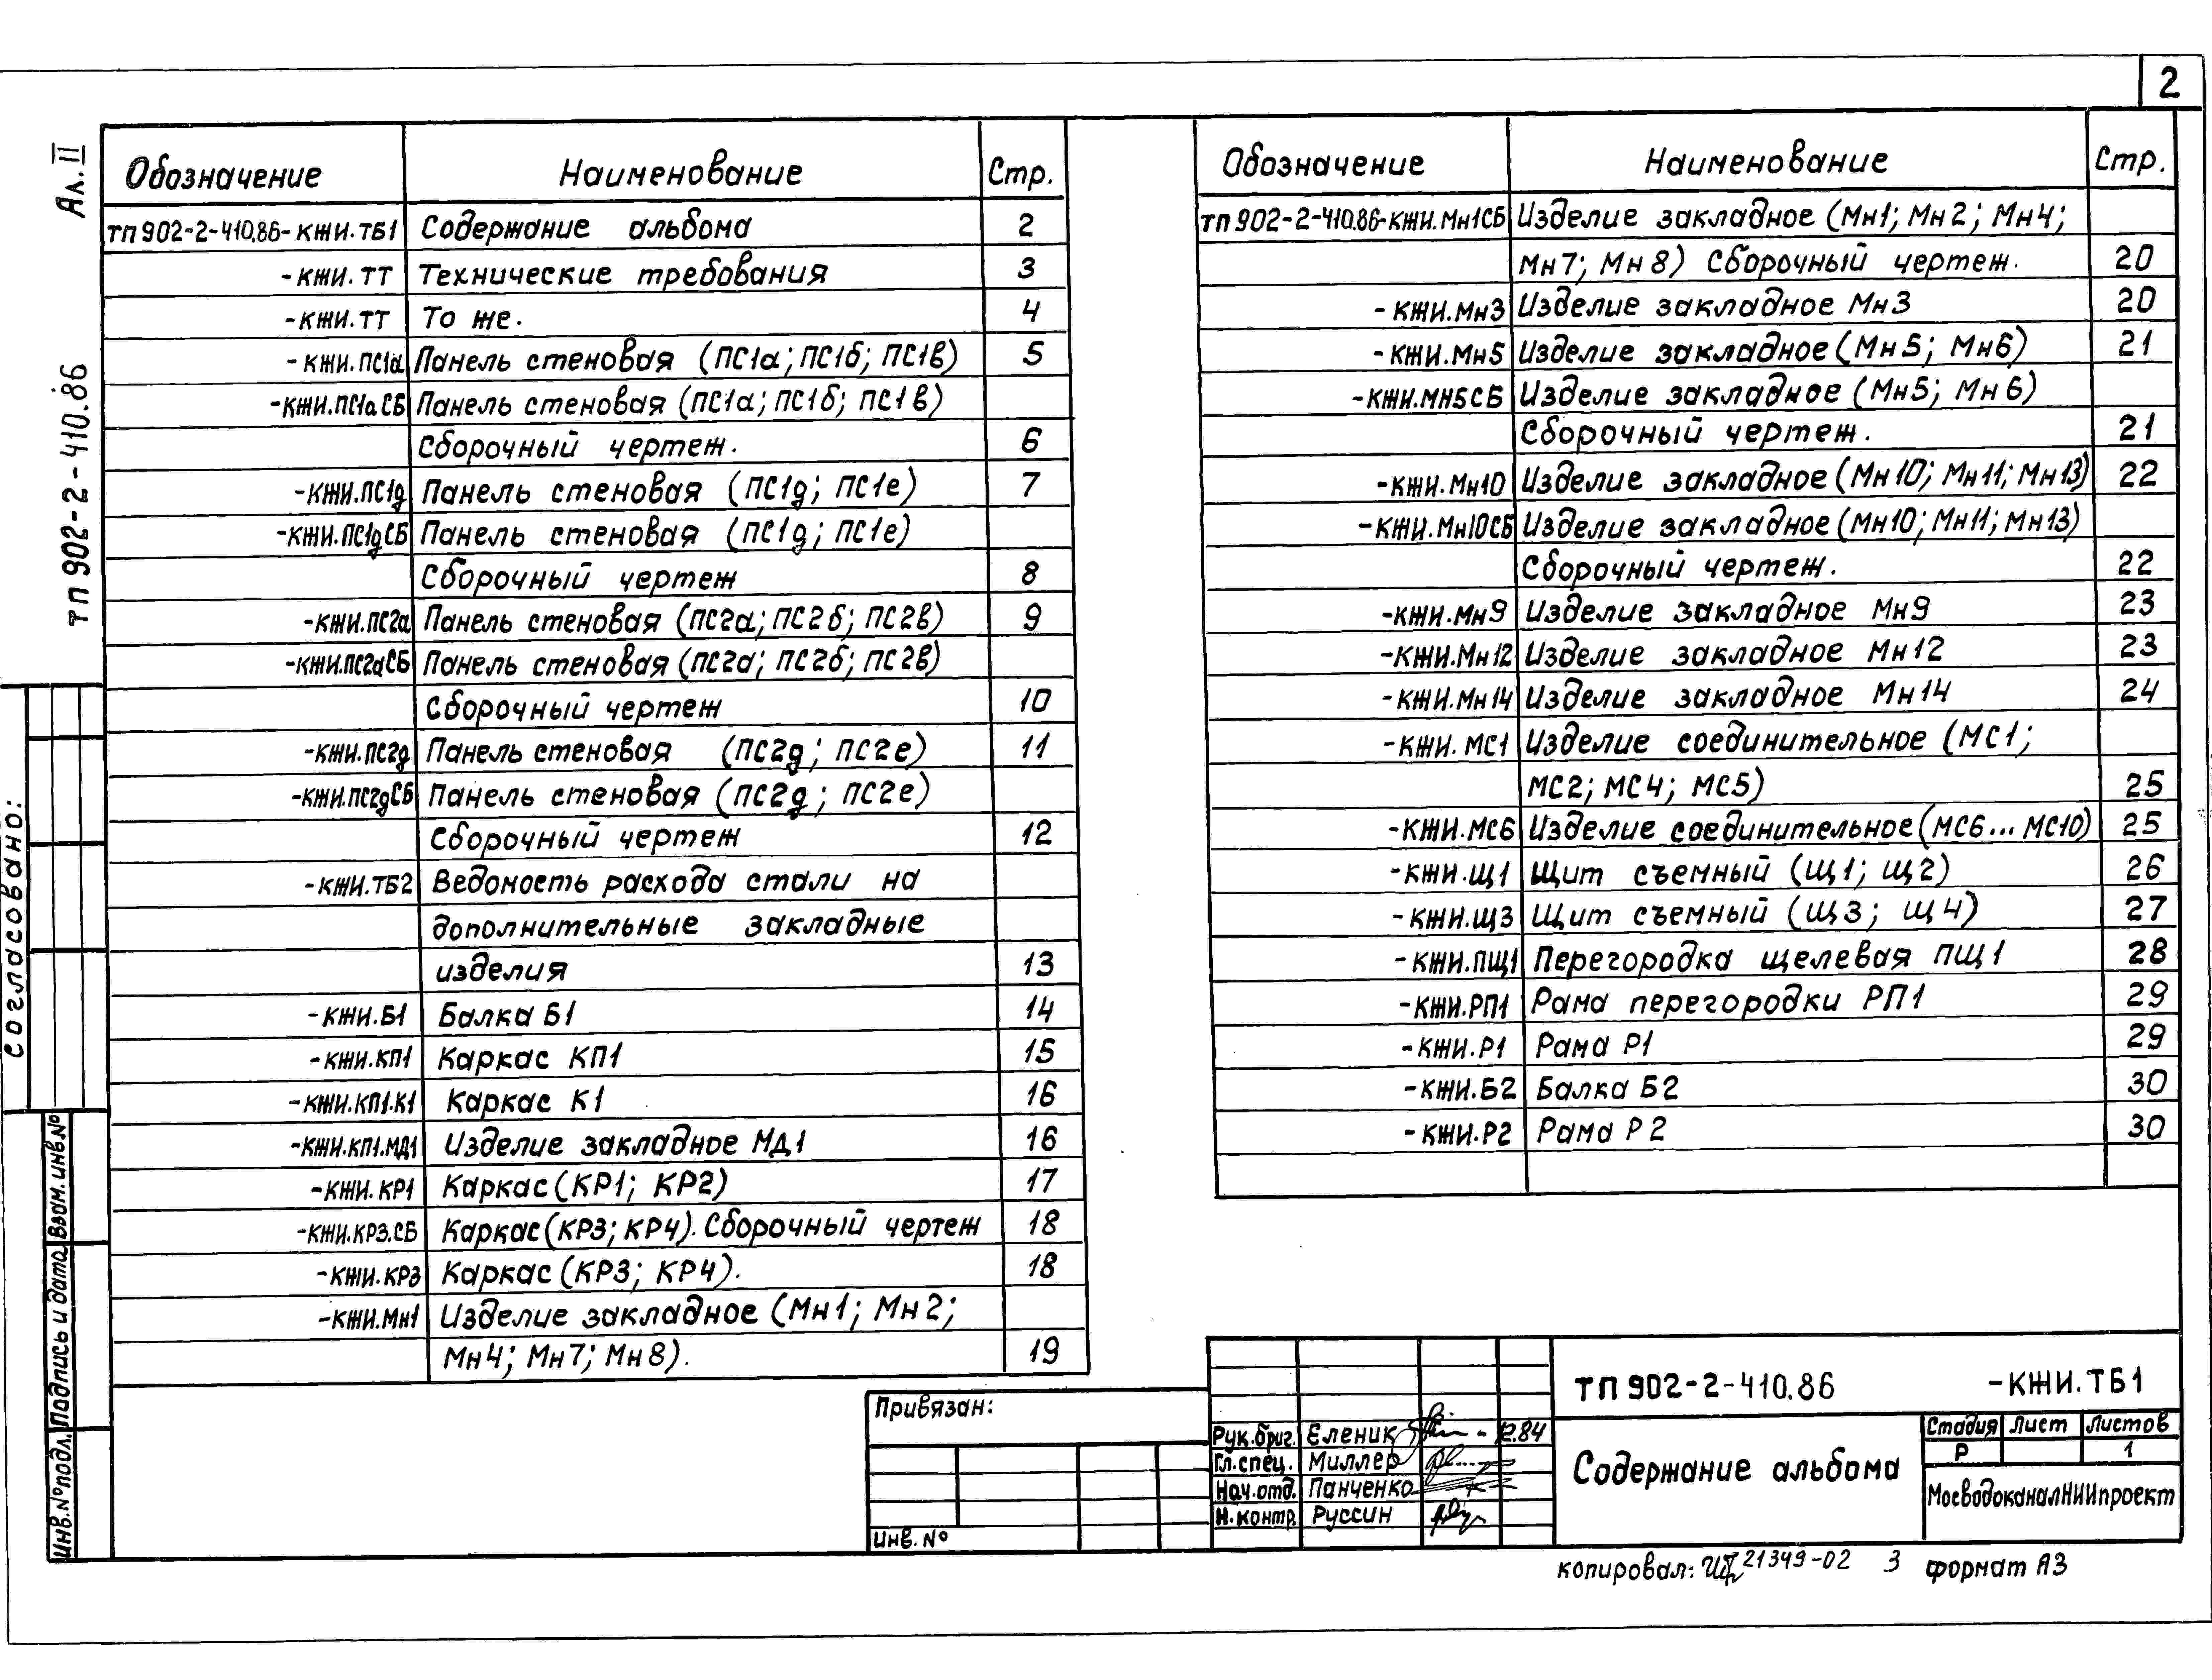 2
Ал. II
тп 902-2-410.86
Обозначение Наименование Стр.
тп 902-2-410.86-кжи.ТБ1 Содержание альбома 2
-кжи.тт Технические требования 3
-кжи.тт То же. 4
-кжи.ПС1а Панель стеновая (ПС1а; ПС1б; ПС1в) 5
-кжи.ПС1аСБ Панель стеновая (ПС1а; ПС1б; ПС1в)
Сборочный чертеж. 6
-кжи.ПС1д Панель стеновая (ПС1д; ПС1е) 7
-кжи.ПС1дСБ Панель стеновая (ПС1д; ПС1е)
Сборочный чертеж 8
-кжи.ПС2а Панель стеновая (ПС2а; ПС2б; ПС2в) 9
-кжи.ПС2аСБ Панель стеновая (ПС2а; ПС2б; ПС2в)
Сборочный чертеж 10
-кжи.ПС2д Панель стеновая (ПС2д; ПС2е) 11
-кжи.ПС2дСБ Панель стеновая (ПС2д; ПС2е)
Сборочный чертеж 12
-кжи.ТБ2 Ведомость расхода стали на
дополнительные закладные
изделия 13
-кжи.Б1 Балка Б1 14
-кжи.КП1 Каркас КП1 15
-кжи.КП1.К1 Каркас К1 16
-кжи.КП1.МД1 Изделие закладное МД1 16
-кжи.КР1 Каркас (КР1; КР2) 17
-кжи.КР3.СБ Каркас (КР3; КР4). Сборочный чертеж 18
-кжи.КР3 Каркас (КР3; КР4). 18
-кжи.Мн1 Изделие закладное (Мн1; Мн2;
Мн4; Мн7; Мн8). 19
Обозначение Наименование Стр.
тп 902-2-410.86-кжи.Мн1СБ Изделие закладное (Мн1; Мн2; Мн4;
Мн7; Мн8) Сборочный чертеж. 20
-кжи.Мн3 Изделие закладное Мн3 20
-кжи.Мн5 Изделие закладное (Мн5; Мн6) 21
-кжи.Мн5СБ Изделие закладное (Мн5; Мн6)
Сборочный чертеж. 21
-кжи.Мн10 Изделие закладное (Мн10; Мн11; Мн13) 22
-кжи.Мн10СБ Изделие закладное (Мн10; Мн11; Мн13)
Сборочный чертеж. 22
-кжи.Мн9 Изделие закладное Мн9 23
-кжи.Мн12 Изделие закладное Мн12 23
-кжи.Мн14 Изделие закладное Мн14 24
-кжи.МС1 Изделие соединительное (МС1;
МС2; МС4; МС5) 25
-кжи.МС6 Изделие соединительное (МС6...МС10) 25
-кжи.Щ1 Щит съемный (Щ1; Щ2) 26
-кжи.Щ3 Щит съемный (Щ3; Щ4) 27
-кжи.ПЩ1 Перегородка щелевая ПЩ1 28
-кжи.РП1 Рама перегородки РП1 29
-кжи.Р1 Рама Р1 29
-кжи.Б2 Балка Б2 30
-кжи.Р2 Рама Р2 30
согласовано:
Взам. инв. №
Подпись и дата
Инв. № подл.
Привязан:
Инв. №
Рук. бриг. Еленик 12.84
Гл. спец. Миллер
Нач. отд. Панченко
Н. контр. Руссин
ТП 902-2-410.86 -КЖИ.ТБ1
Содержание альбома
Стадия Лист Листов
Р 1
МосводоканалНИИпроект
копировал: 21349-02 3 формат А3